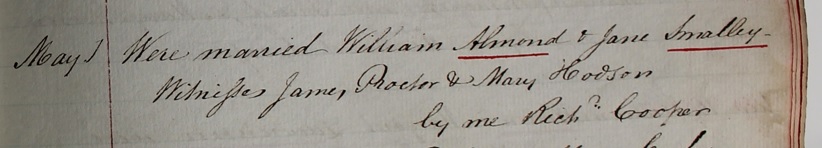 May 1 Were married William Almond & Jane Smalley-
Witnesses James Proctor & Mary Hodson
by me Richd. Cooper